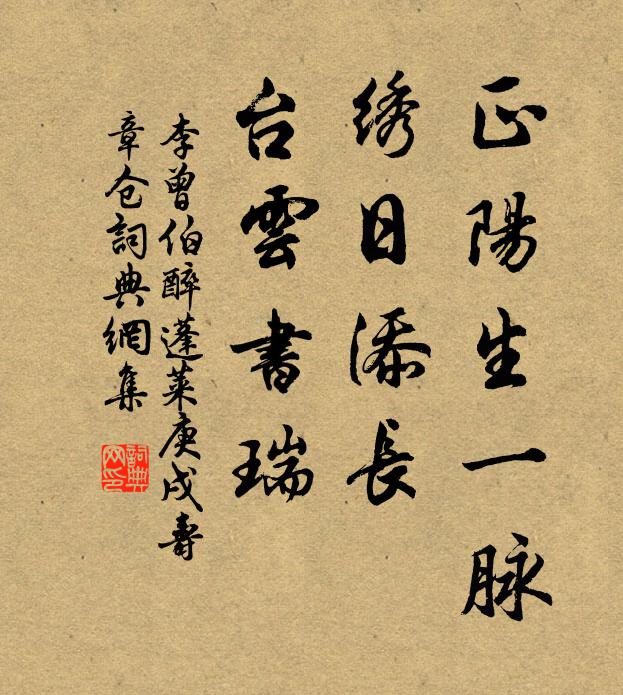 正陽生一脉
绣日添長
台雲書瑞
李曾伯醉蓬萊庚戌壽
章仓詞典網集
詞典网印